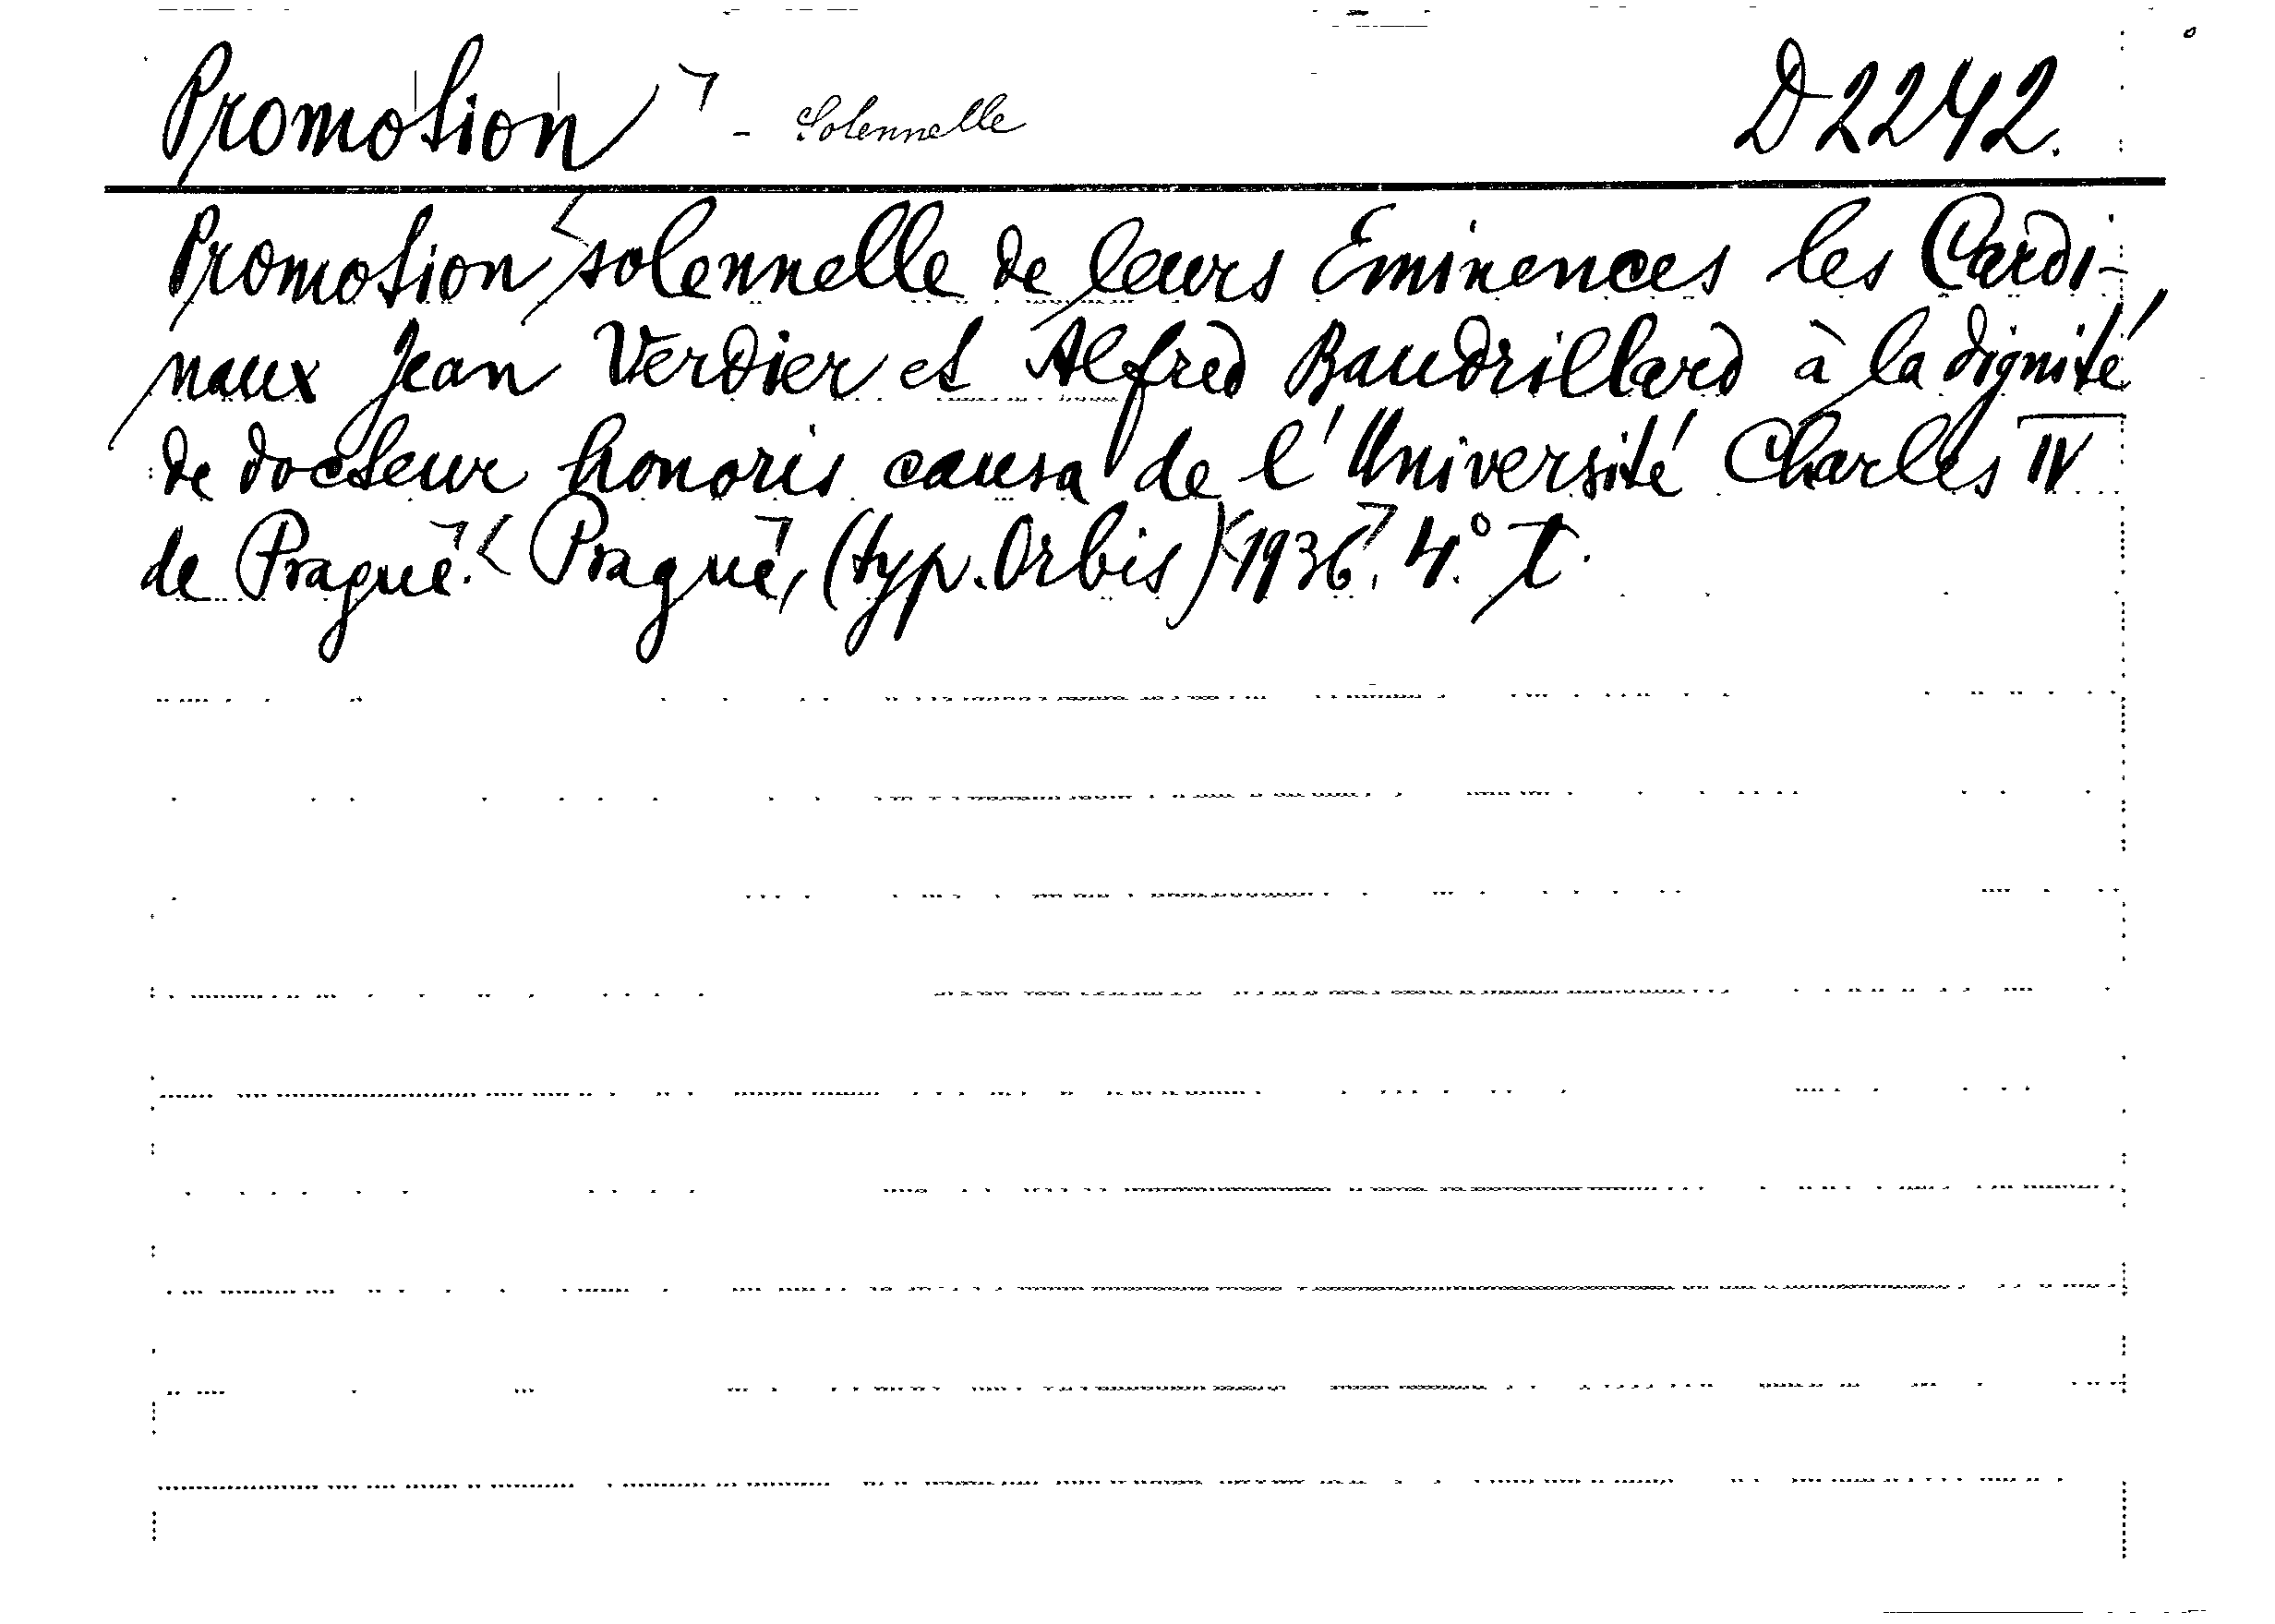 Promotion - Solennelle D2242.
Promotion solennelle de leurs Eminences les Cardi-
naux Jean Verdier et Alfred Baudrillard à la dignité
de docteur honoris causa de l'Université Charles IV
de Prague. Prague, (typ. Orbis) 1936. 4.° T.